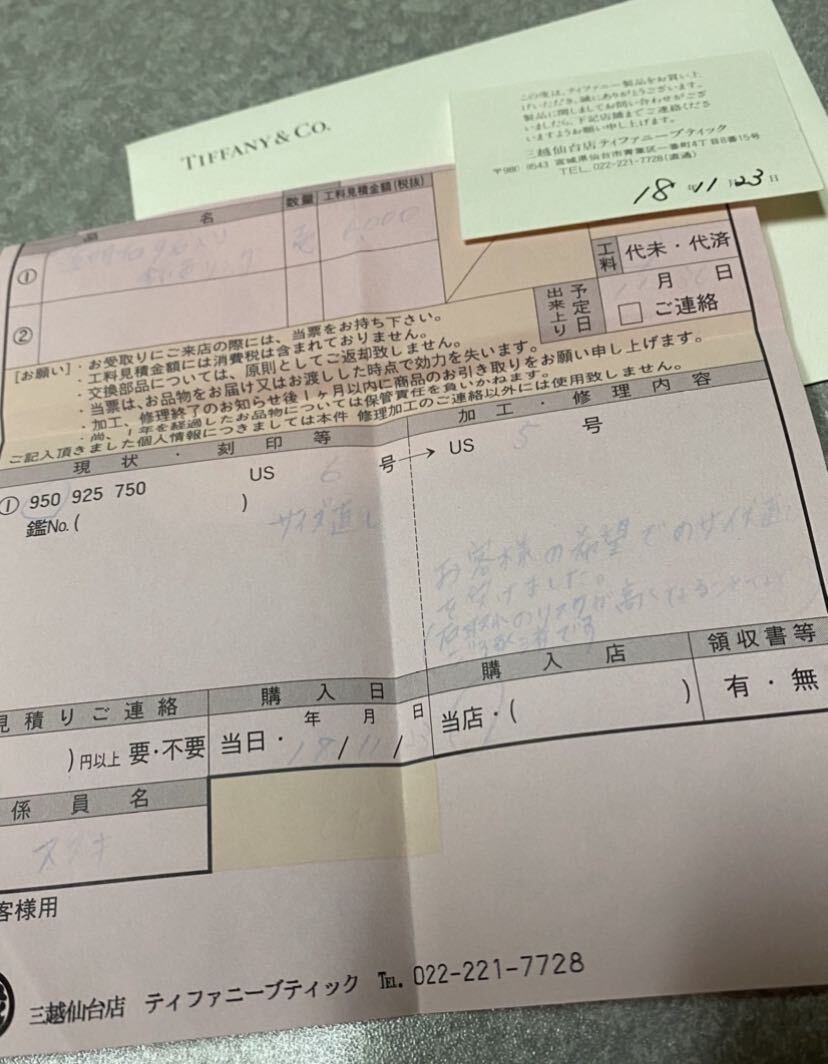 TIFFANY & CO.
この度は、ティファニー製品をお買い上
げいただき、誠にありがとうございます。
製品に関しましてお問い合わせがござ
いましたら、下記店舗までご連絡くださ
いますようお願い申し上げます。
三越仙台店ティファニーブティック
〒980 8543 宮城県仙台市青葉区一番町4丁目8番15号
TEL. 022-221-7728(直通)
18年11月23日
名 数量 工料見積金額(税抜)
①
リング 6,000
②
工料 代未・代済
出来上り予定日 月 日
ご連絡
[お願い]・お受取りにご来店の際には、当票をお持ち下さい。
・工料見積金額には消費税は含まれておりません。
・交換部品については、原則としてご返却致しません。
・当票は、お品物をお届け又はお渡しした時点で効力を失います。
・加工、修理終了のお知らせ後1ヶ月以内に商品のお引き取りをお願い申し上げます。
・尚、1年を経過したお品物については保管責任を負いかねます。
ご記入頂きました個人情報につきましては本件 修理加工のご連絡以外には使用致しません。
現状・刻印等 加工・修理内容
① 950 925 750 US 6 号 → US 5 号
鑑No.( )
サイズ直し
お客様の希望でのサイズ直し
を受けました。
のリスクが高くなる
です
見積りご連絡 購入日 購入店 領収書等
)円以上 要・不要 当日・ 年 月 日 18/11/ 当店・( ) 有・無
係員名
客様用
三越仙台店 ティファニーブティック TEL. 022-221-7728